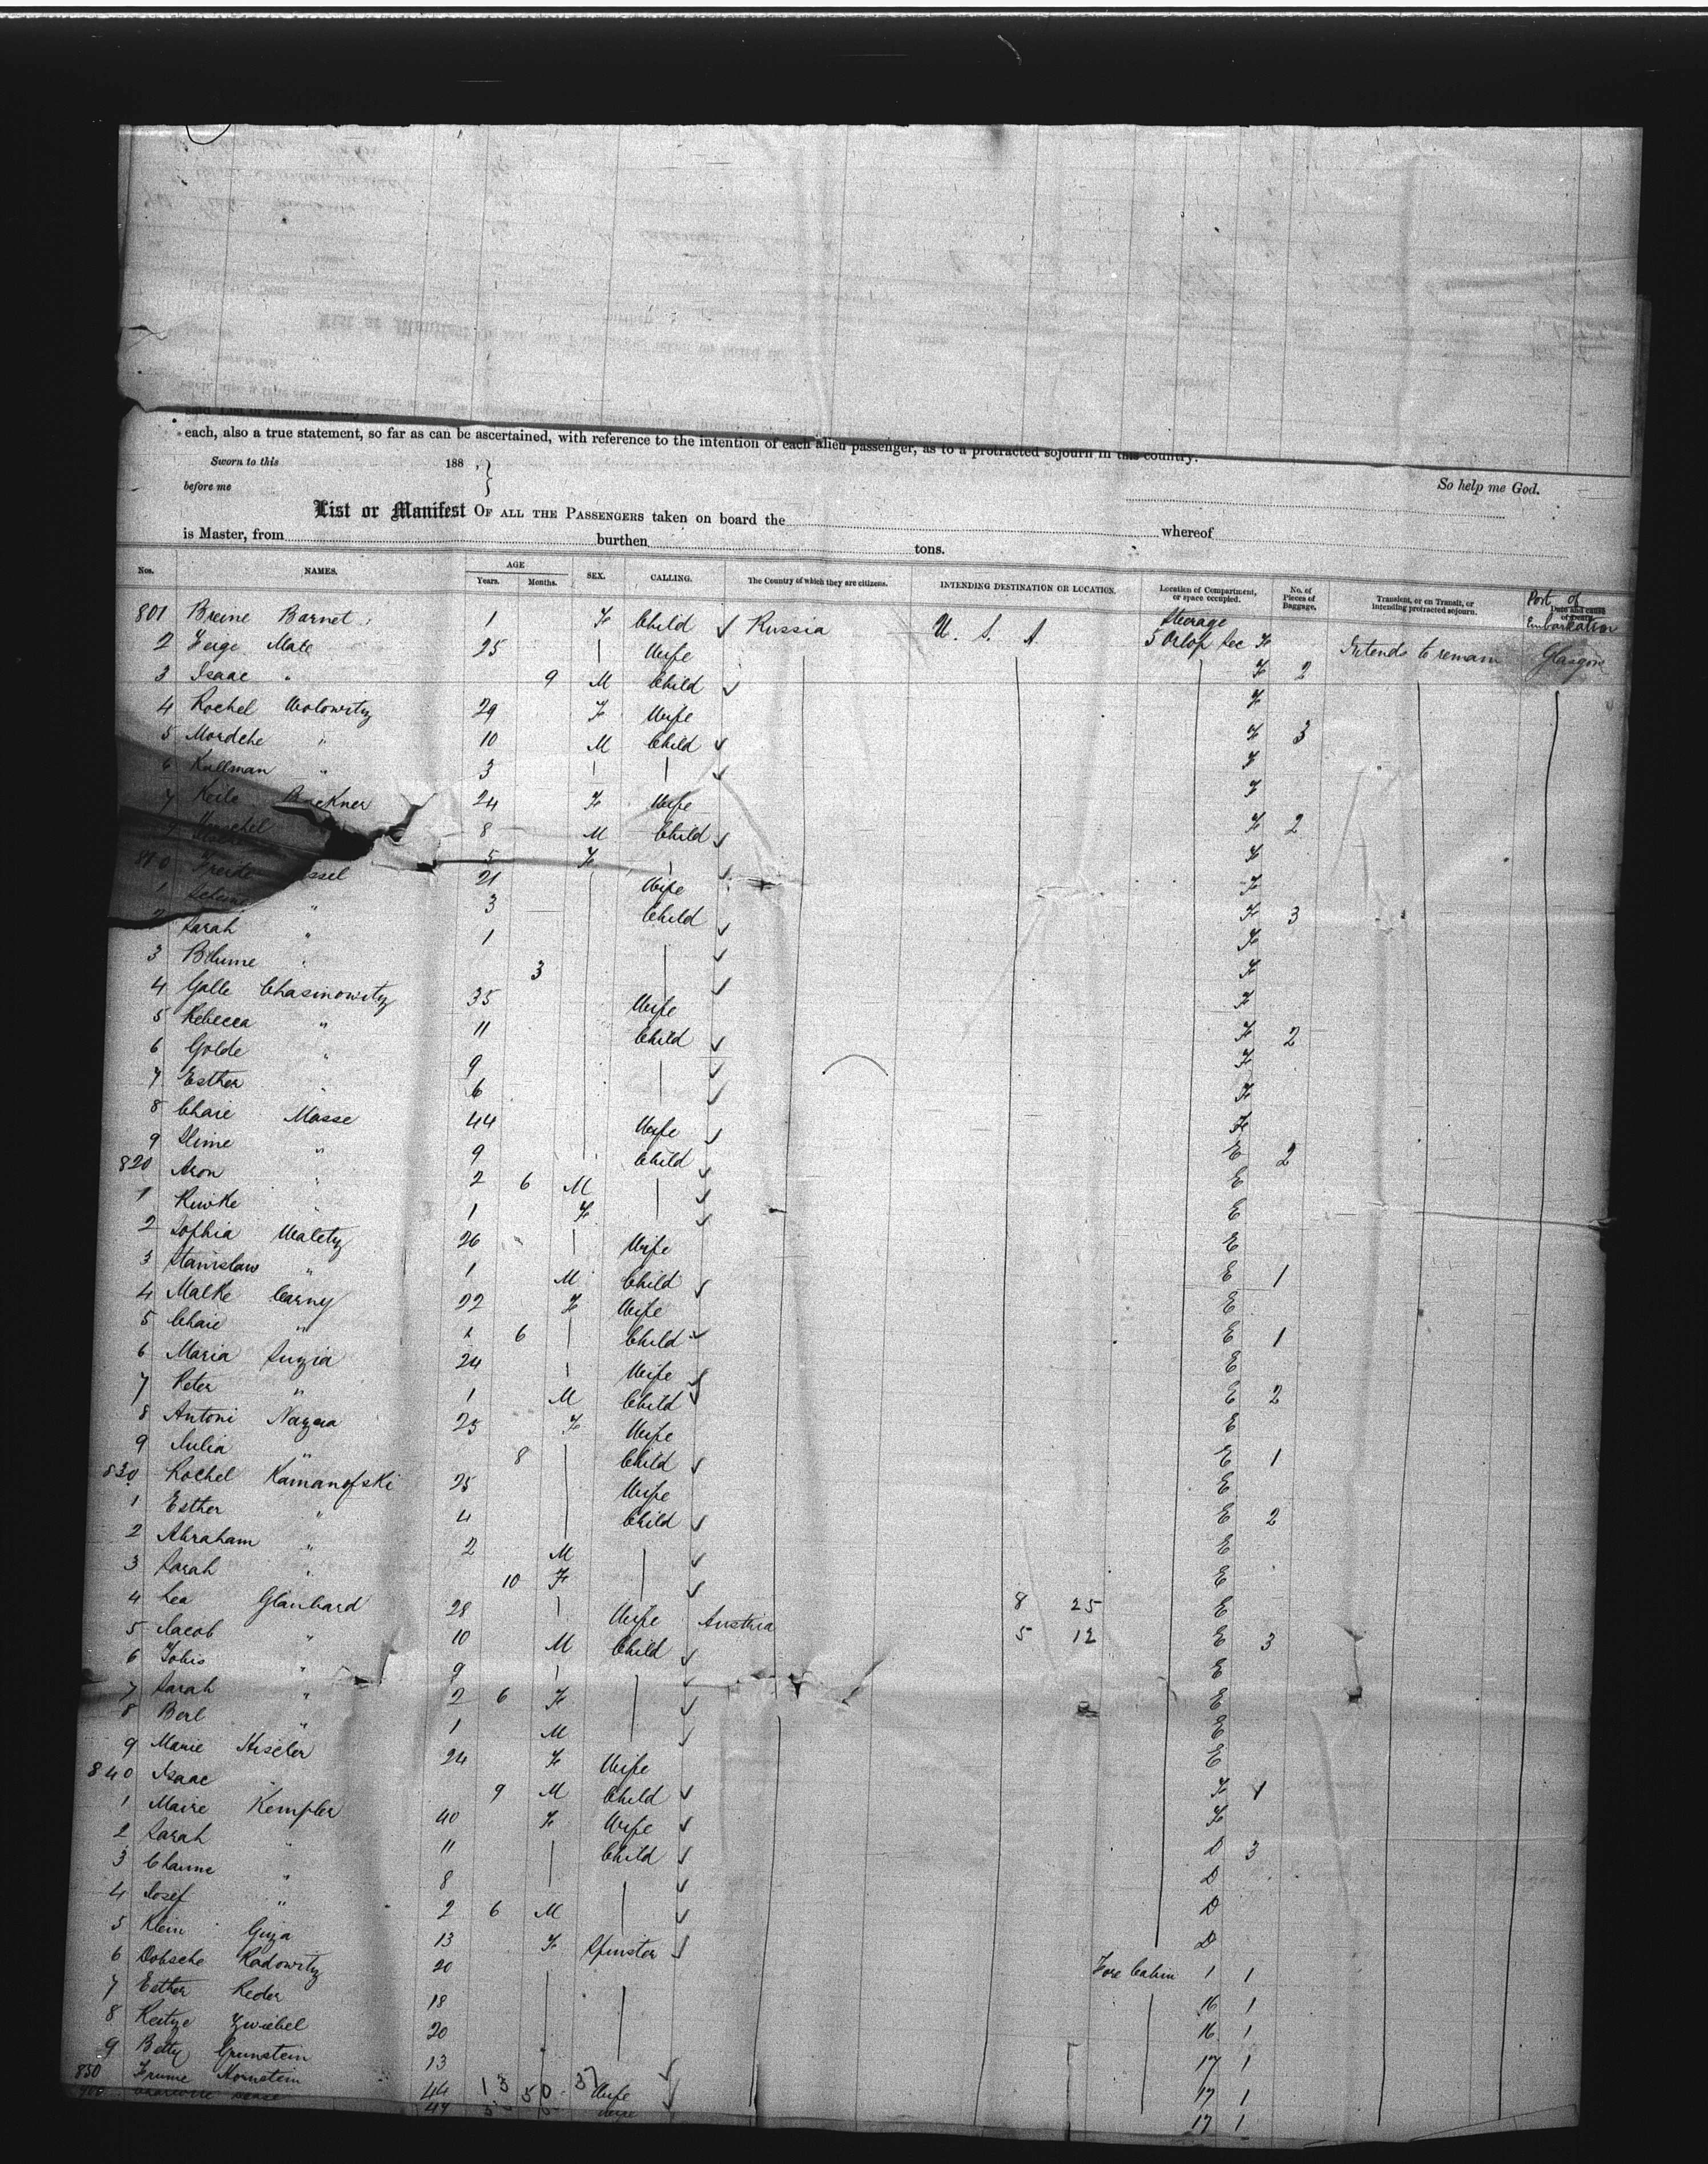 each, also a true statement, so far as can be ascertained, with reference to the intention of each alien passenger, as to a protracted sojourn in this country.
Sworn to this 188 , }
before me
So help me God.
List or Manifest OF ALL THE PASSENGERS taken on board the whereof
is Master, from burthen tons.
Nos. NAMES. AGE Years. Months. SEX. CALLING. The Country of which they are citizens. INTENDING DESTINATION OR LOCATION. Location of Compartment, or space occupied. No. of Pieces of Baggage. Transient, or in Transit, or intending protracted sojourn. Port of Embarkation Date and cause of Death
801 Breine Barnet 1 F Child Russia U. S. A Steerage 5 Orlop Sec F Intends to remain Glasgow
2 Feige Male 25 Wife F 2
3 Isaac " 9 M Child F
4 Rochel Wolowitz 29 F Wife F 3
5 Mordche " 10 M Child F
6 Kallman " 3 F
7 Keile 24 F Wife F 2
8 M Child F
5 F
810 Freide 21 Wife F 3
1 " 3 Child F
2 Sarah " 1 F
3 Blume " 3 F
4 Golle Chasinowitz 35 Wife F 2
5 Rebecca " 11 Child F
6 Golde " 9 F
7 Esther " 6 F
8 Chaie Masse 44 Wife E 2
9 Slime " 9 Child E
820 Aron " 2 6 M E
1 Riwke " 1 F E
2 Sophia Waletz 26 Wife E 1
3 Stanislaw " 1 M Child E
4 Malke Carny 22 F Wife E 1
5 Chaie " 1 6 Child E
6 Maria Suzia 24 Wife E 2
7 Peter " 1 M Child E
8 Antoni 25 F Wife E 1
9 Julia " 8 Child E
830 Rochel Kamanofski 25 Wife E 2
1 Esther " 4 Child E
2 Abraham " 2 M E
3 Sarah " 10 F E
4 Lea Glanbard 28 Wife Austria 8 25 E 3
5 Jacob " 10 M Child 5 12 E
6 Tobis " 9 E
7 Sarah " 2 6 F E
8 Berl " 1 M E
9 Marie 24 F Wife F 1
840 Isaac " 9 M Child F
1 Maire Kempler 40 F Wife D 3
2 Sarah " 11 Child D
3 Channe " 8 D
4 Josef " 2 6 M D
5 Klein Giza 13 F Spinster Fore Cabin 1 1
6 Dobsche Radowitz 20 16 1
7 Esther Reder 18 16 1
8 Reitze Zwiebel 20 17 1
9 Betty Grunstein 13 17 1
850 Frume Hornstein 44 Wife 17 1